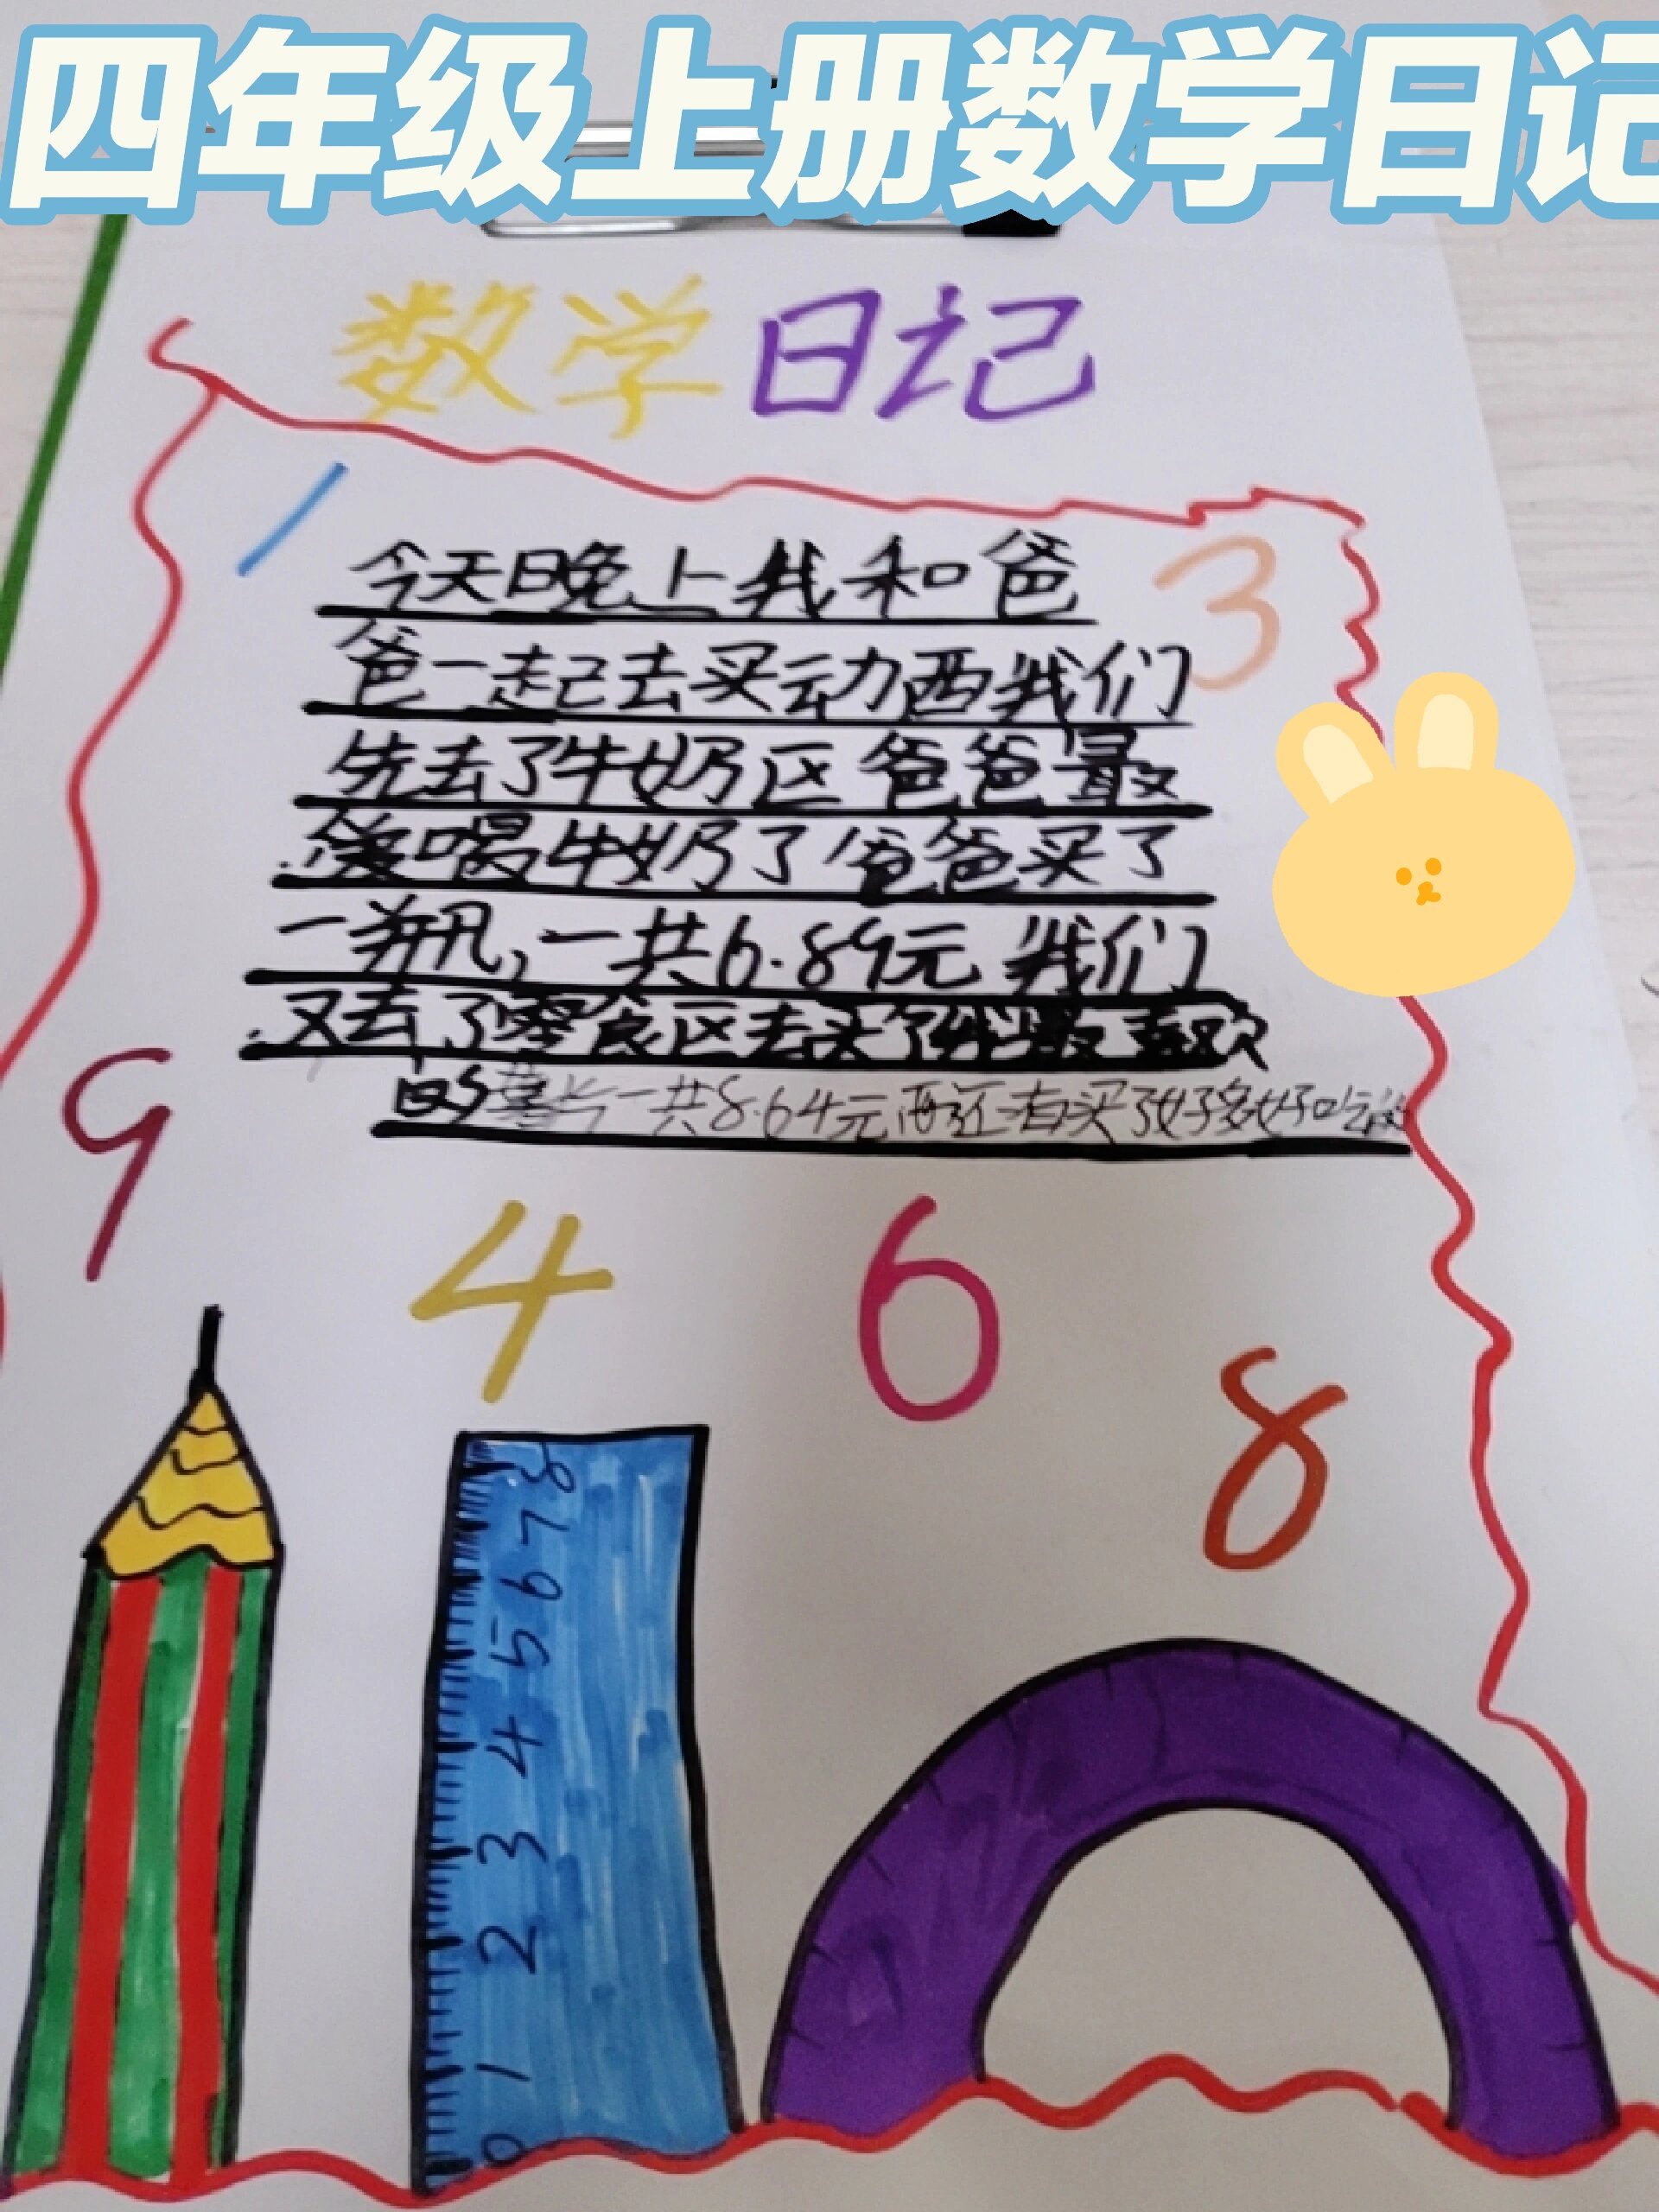 四年级上册数学日记
数学日记
1
今天晚上我和爸
3
爸一起去买动西我们
先去了牛奶区 爸爸最
爱喝牛奶了 爸爸买了
一瓶,一共6.89元 我们
又去了零食区去买了
的薯片一共8.64元 还有买了好多好吃的
9
4
6
8
8
7
6
5
4
3
2
1
0